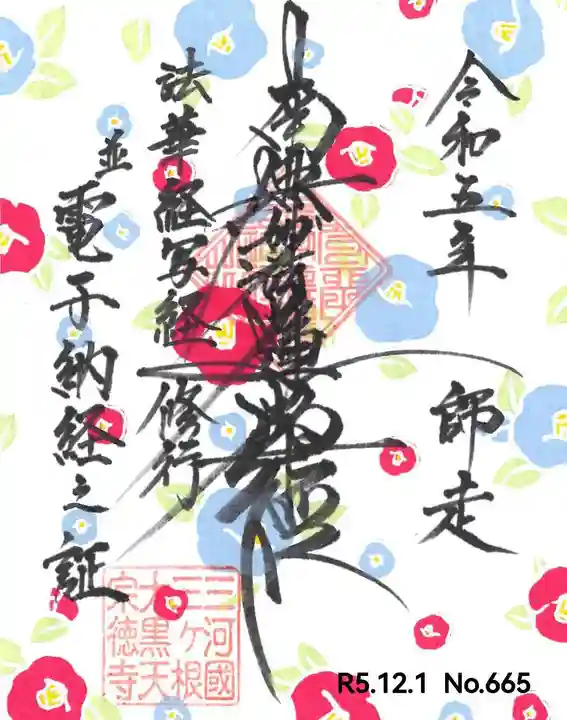 令和五年 師走
南無妙法蓮華経
法華経写経修行
並電子納経之証
三河國
三ヶ根
大黒天
宗徳寺
R5.12.1 No.665